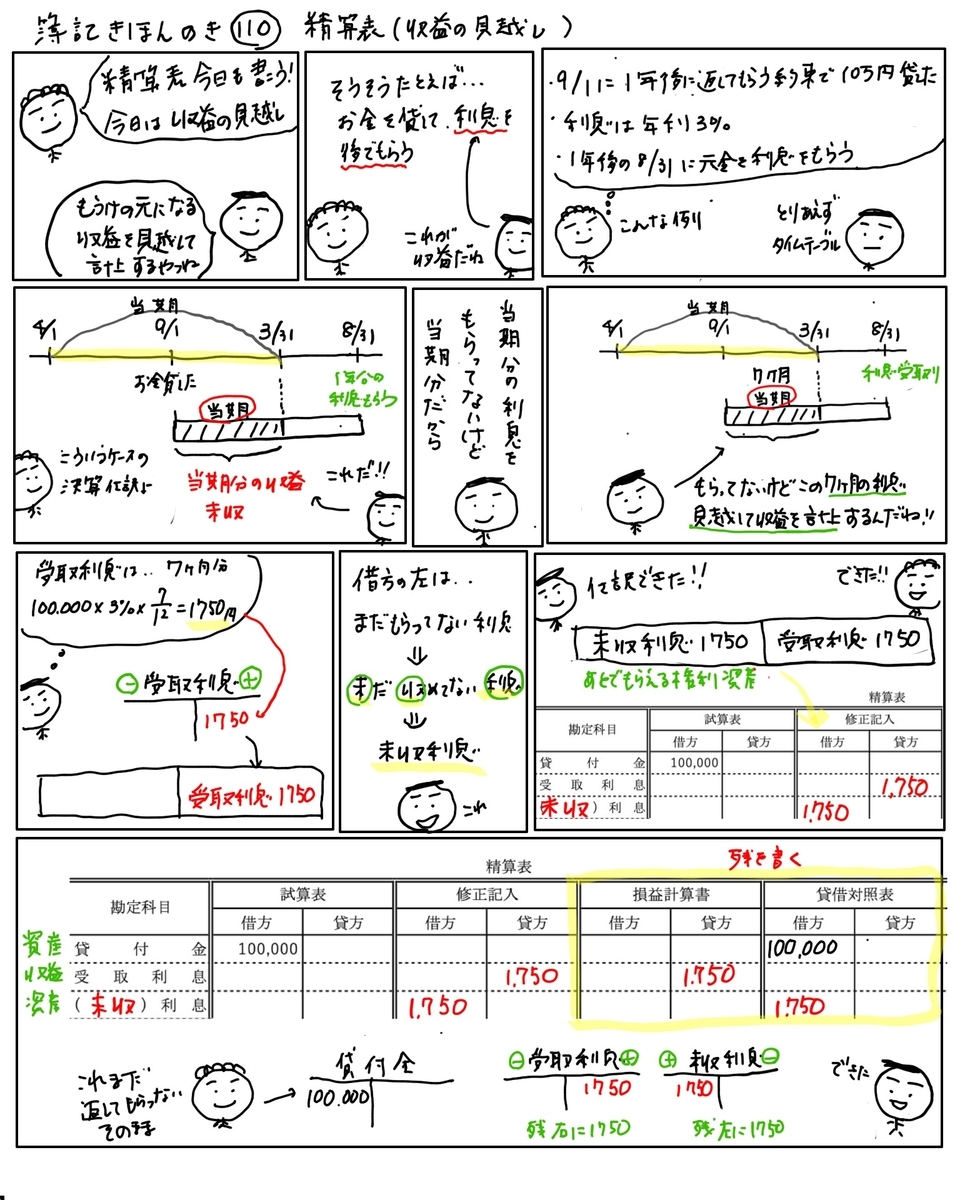 簿記きほんのき110 精算表(収益の見越し)
精算表今日も書こう!
今日は収益の見越し
もうけの元になる
収益を見越して
計上するやつね
そうそうたとえば...
お金を貸して、利息を
後でもらう
これが
収益だね
・9/1に1年後に返してもらう約束で10万円貸した
・利息は年利3%。
・1年後の8/31に元金と利息をもらう
こんな例り
とりあえず
タイムテーブル
当期
4/1 9/1 3/31 8/31
お金貸した
1年分の
利息もらう
当期
こういうケースの
決算仕訳よ
当期分の収益
未収
これだ!!
当期分の利息を
もらってないけど
当期分だから
当期
4/1 9/1 3/31 8/31
7ヶ月
利息受取り
当期
もらってないけどこの7ヶ月の利息
見越して収益を計上するんだね!!
受取利息は.. 7ヶ月分
100.000×3%×7/12=1750円
⊖受取利息⊕
1750
受取利息1750
借方の左は..
まだもらってない利息
⇓
まだ収めてない利息
⇓
未収利息
これ
仕訳できた!!
できた!!
未収利息1750 受取利息1750
あとでもらえる権利 資産
精算表
勘定科目 試算表 修正記入
借方 貸方 借方 貸方
貸付金 100,000
受取利息 1,750
未収)利息 1,750
精算表 残を書く
勘定科目 試算表 修正記入 損益計算書 貸借対照表
借方 貸方 借方 貸方 借方 貸方 借方 貸方
資産 貸付金 100,000 100,000
収益 受取利息 1,750 1,750
資産 (未収)利息 1,750 1,750
これまだ
返してもらってない
そのまま
→
貸付金
100.000
⊖受取利息⊕
1750
残右に1750
⊕未収利息⊖
1750
残左に1750
できた